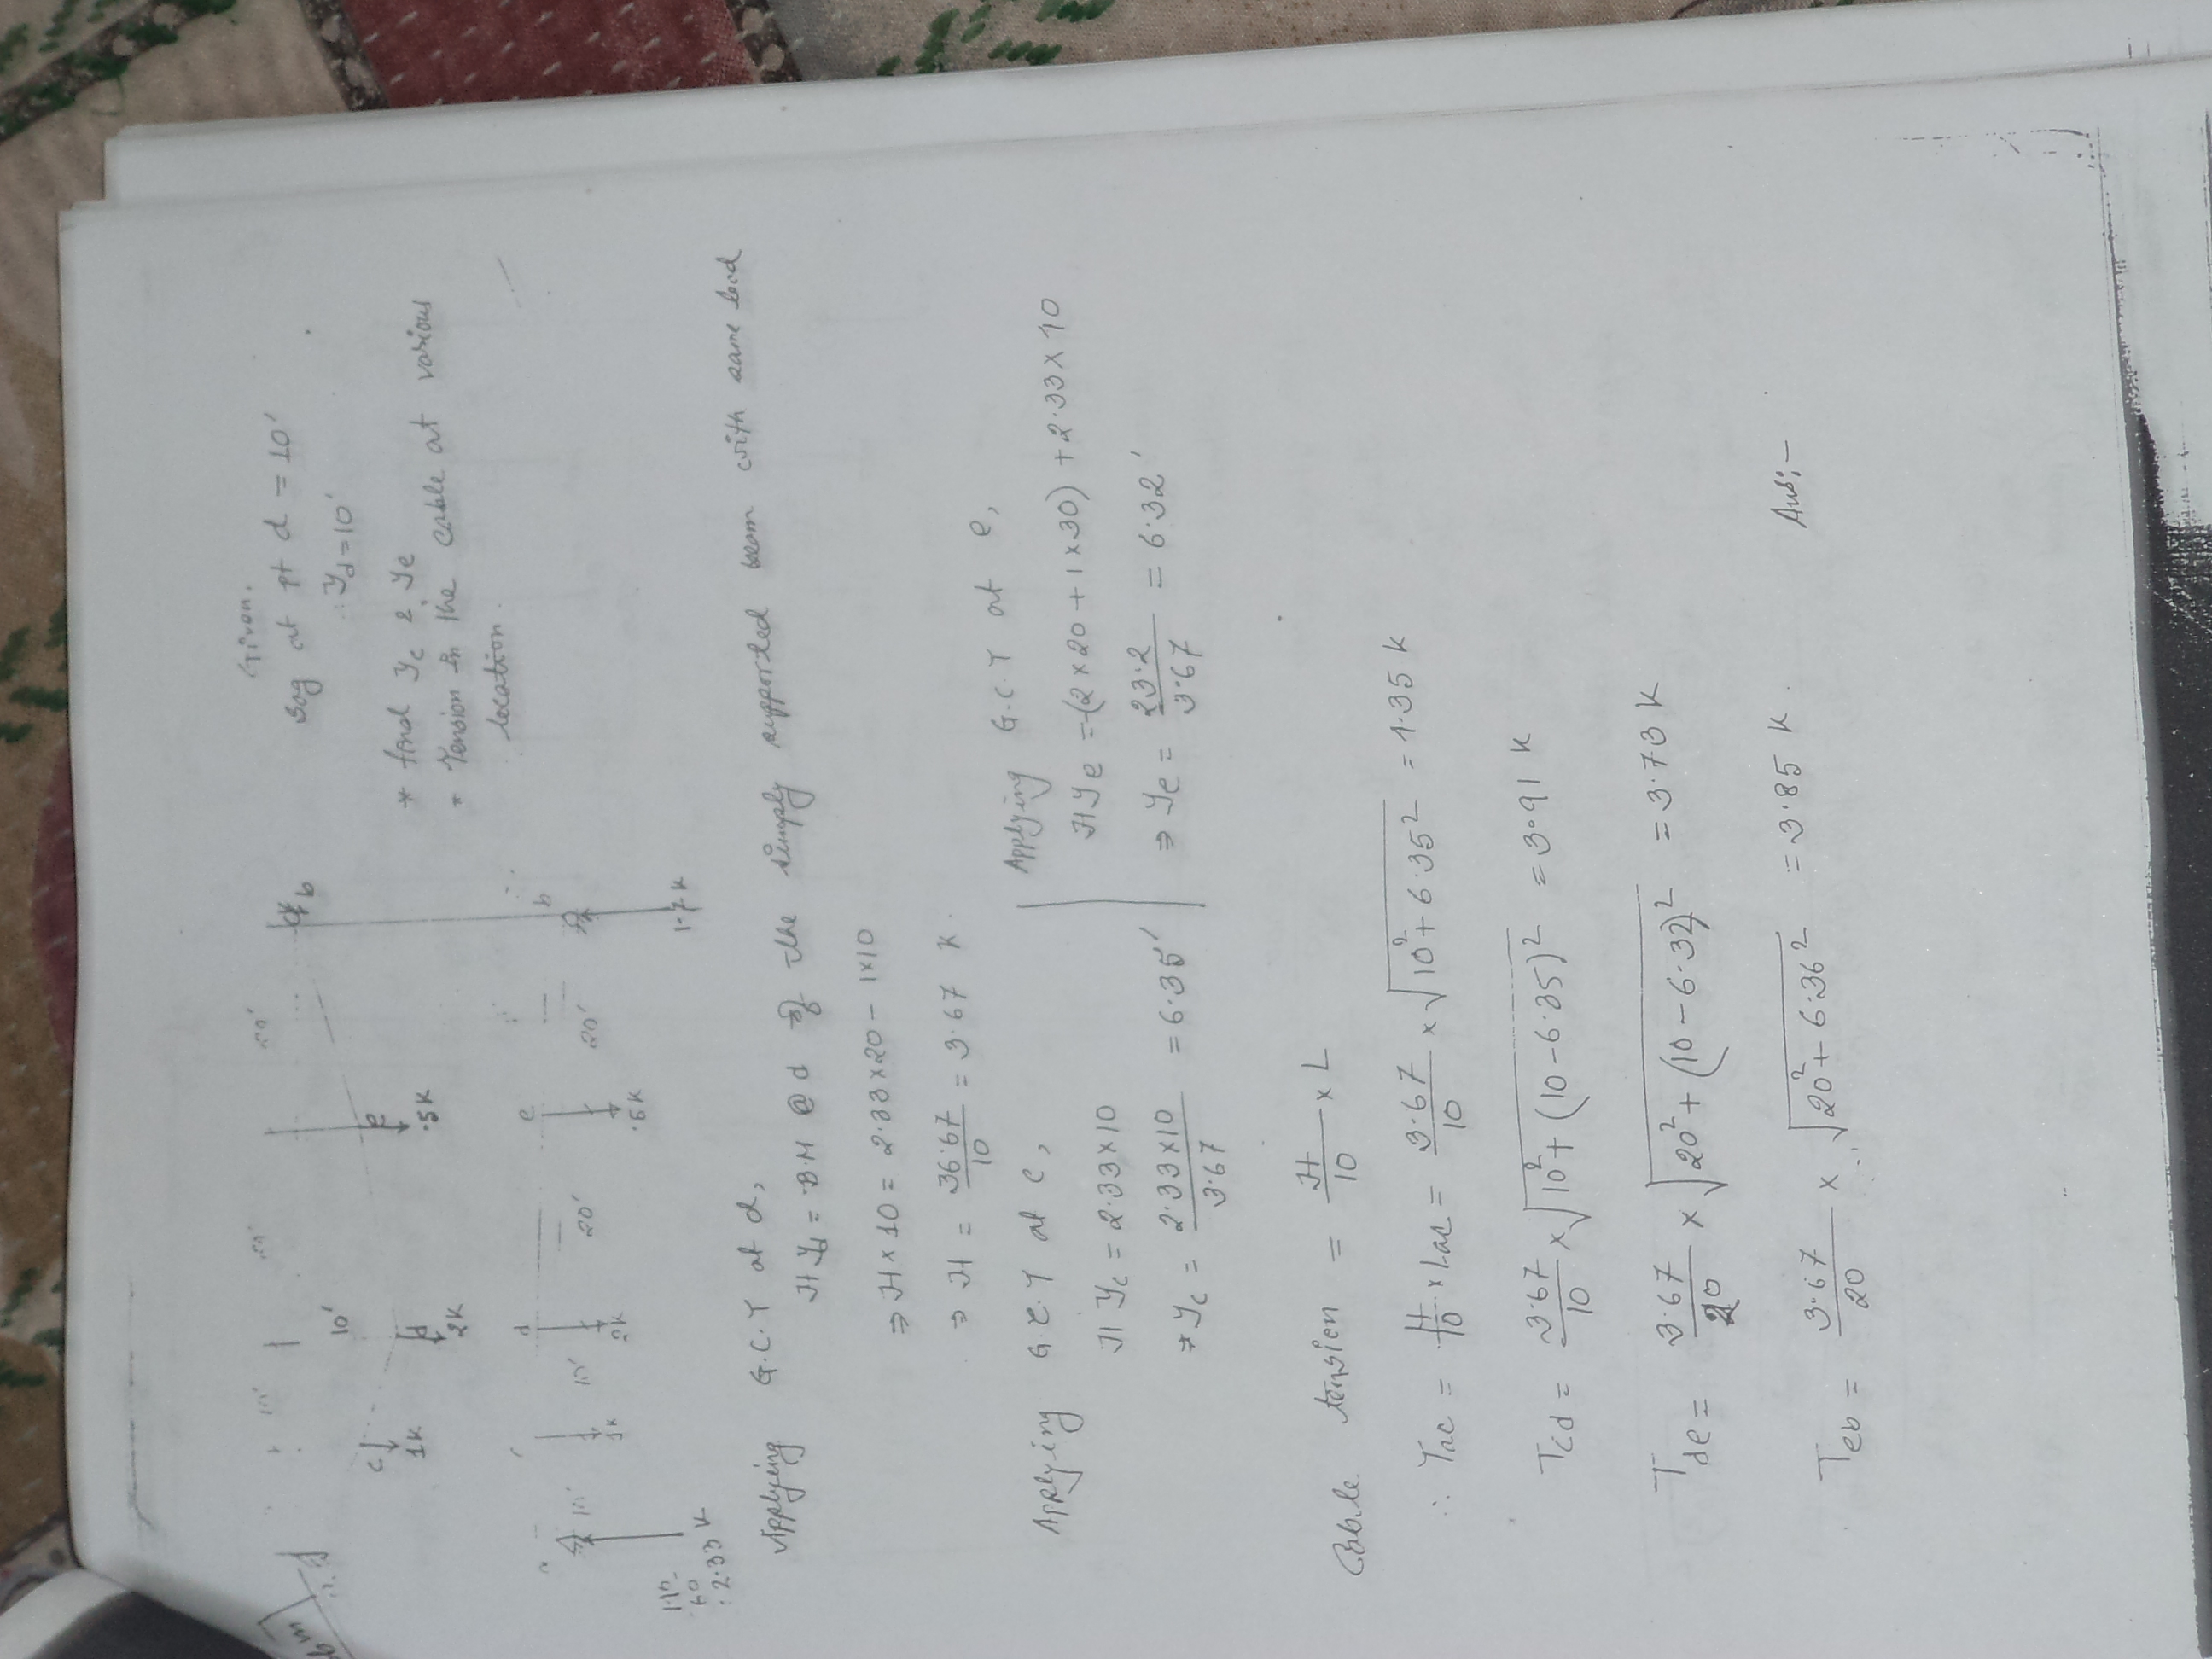 Given.
sag at pt d = 10'
∴ yd = 10'
* find yc & ye
* Tension in the cable at various
location.
10'
20'
20'
b
10'
c
1K
d
2K
e
.5K
10'
10'
20'
20'
d
e
b
1K
2K
.5K
1.7K
140
60
: 2.33 K
Applying G.C.T at d,
H yd = B.M @ d of the simply supported beam with same load
⇒ H × 10 = 2.33 × 20 − 1×10
⇒ H = 36.67/10 = 3.67 K.
Applying G.C.T at c,
H yc = 2.33×10
⇒ yc = 2.33×10/3.67 = 6.35'
Applying G.C.T at e,
H ye = −(2×20 + 1×30) + 2.33×10
⇒ ye = 23.2/3.67 = 6.32'
Cable tension = H/10 × L
∴ Tac = H/10 × Lac = 3.67/10 × √10² + 6.35² = 1.35 K
Tcd = 3.67/10 × √10² + (10 − 6.35)² = 3.91 K
Tde = 3.67/20 × √20² + (10 − 6.32)² = 3.73 K
Teb = 3.67/20 × √20² + 6.36² = 3.85 K.
Ans:–